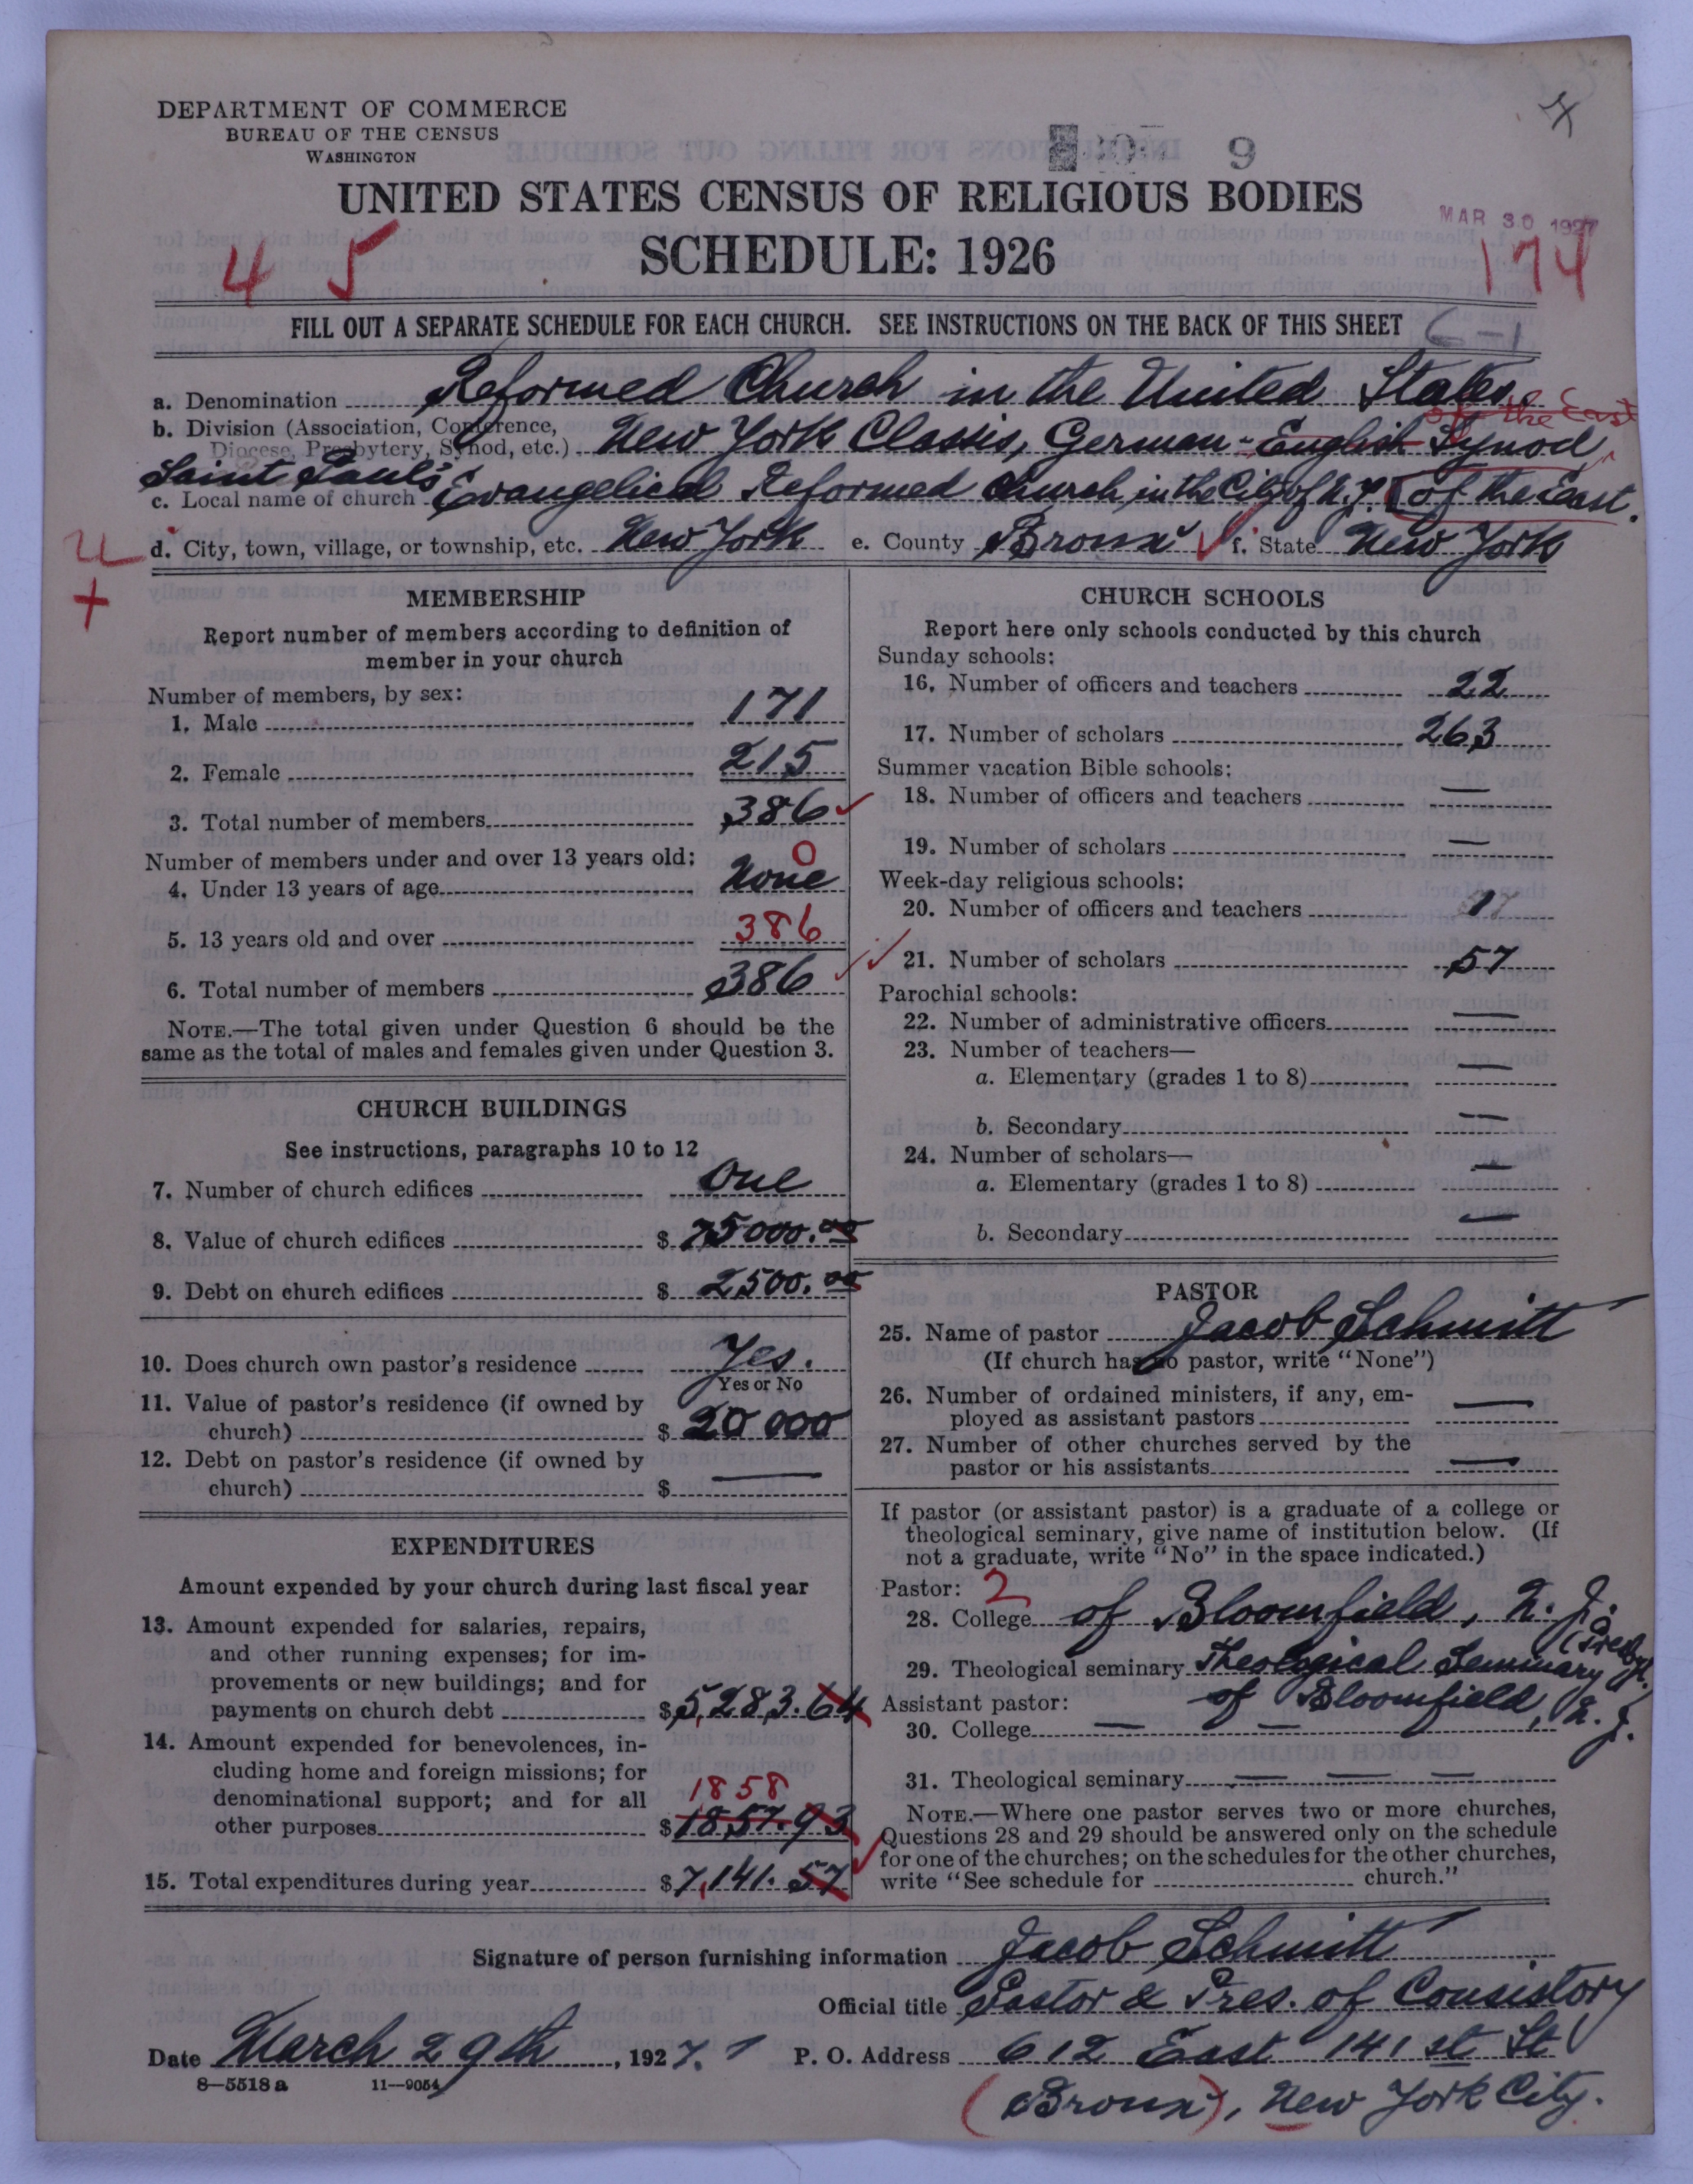 DEPARTMENT OF COMMERCE
BUREAU OF THE CENSUS
WASHINGTON
9
UNITED STATES CENSUS OF RELIGIOUS BODIES
MAR 30 1927
SCHEDULE: 1926
4 5
174
FILL OUT A SEPARATE SCHEDULE FOR EACH CHURCH. SEE INSTRUCTIONS ON THE BACK OF THIS SHEET
6-1
a. Denomination Reformed Church in the United States.
of the East
b. Division (Association, Conference, Diocese, Presbytery, Synod, etc.) New York Classis, German-English Synod
Saint Paul's
c. Local name of church Evangelical Reformed Church, in the City of N.Y. [of the East.
d. City, town, village, or township, etc. New York e. County Bronx f. State New York
MEMBERSHIP
Report number of members according to definition of
member in your church
Number of members, by sex:
1. Male 171
2. Female 215
3. Total number of members 386
Number of members under and over 13 years old:
4. Under 13 years of age None 0
5. 13 years old and over 386
6. Total number of members 386
NOTE.—The total given under Question 6 should be the
same as the total of males and females given under Question 3.
CHURCH BUILDINGS
See instructions, paragraphs 10 to 12
7. Number of church edifices One
8. Value of church edifices $ 75000.00
9. Debt on church edifices $ 2500.00
10. Does church own pastor's residence Yes.
Yes or No
11. Value of pastor's residence (if owned by
church) $ 20 000
12. Debt on pastor's residence (if owned by
church) $ —
EXPENDITURES
Amount expended by your church during last fiscal year
13. Amount expended for salaries, repairs,
and other running expenses; for im-
provements or new buildings; and for
payments on church debt $ 5,283.64
14. Amount expended for benevolences, in-
cluding home and foreign missions; for
denominational support; and for all
1858
other purposes $ 1857.93
15. Total expenditures during year $ 7,141.57
CHURCH SCHOOLS
Report here only schools conducted by this church
Sunday schools:
16. Number of officers and teachers 22
17. Number of scholars 263
Summer vacation Bible schools:
18. Number of officers and teachers —
19. Number of scholars —
Week-day religious schools:
20. Number of officers and teachers 1
21. Number of scholars 57
Parochial schools:
22. Number of administrative officers —
23. Number of teachers—
a. Elementary (grades 1 to 8) —
b. Secondary —
24. Number of scholars—
a. Elementary (grades 1 to 8) —
b. Secondary —
PASTOR
25. Name of pastor Jacob Schmitt
(If church has no pastor, write "None")
26. Number of ordained ministers, if any, em-
ployed as assistant pastors —
27. Number of other churches served by the
pastor or his assistants —
If pastor (or assistant pastor) is a graduate of a college or
theological seminary, give name of institution below. (If
not a graduate, write "No" in the space indicated.)
Pastor: 2
28. College of Bloomfield, N. J.
(Presbyt.)
29. Theological seminary Theological Seminary
Assistant pastor: of Bloomfield, N. J.
30. College — —
31. Theological seminary — — —
NOTE.—Where one pastor serves two or more churches,
Questions 28 and 29 should be answered only on the schedule
for one of the churches; on the schedules for the other churches,
write "See schedule for church."
Signature of person furnishing information Jacob Schmitt
Official title Pastor & Pres. of Consistory
Date March 29th, 1927. P. O. Address 612 East 141st St
8—5518 a 11—9054
(Bronx), New York City.